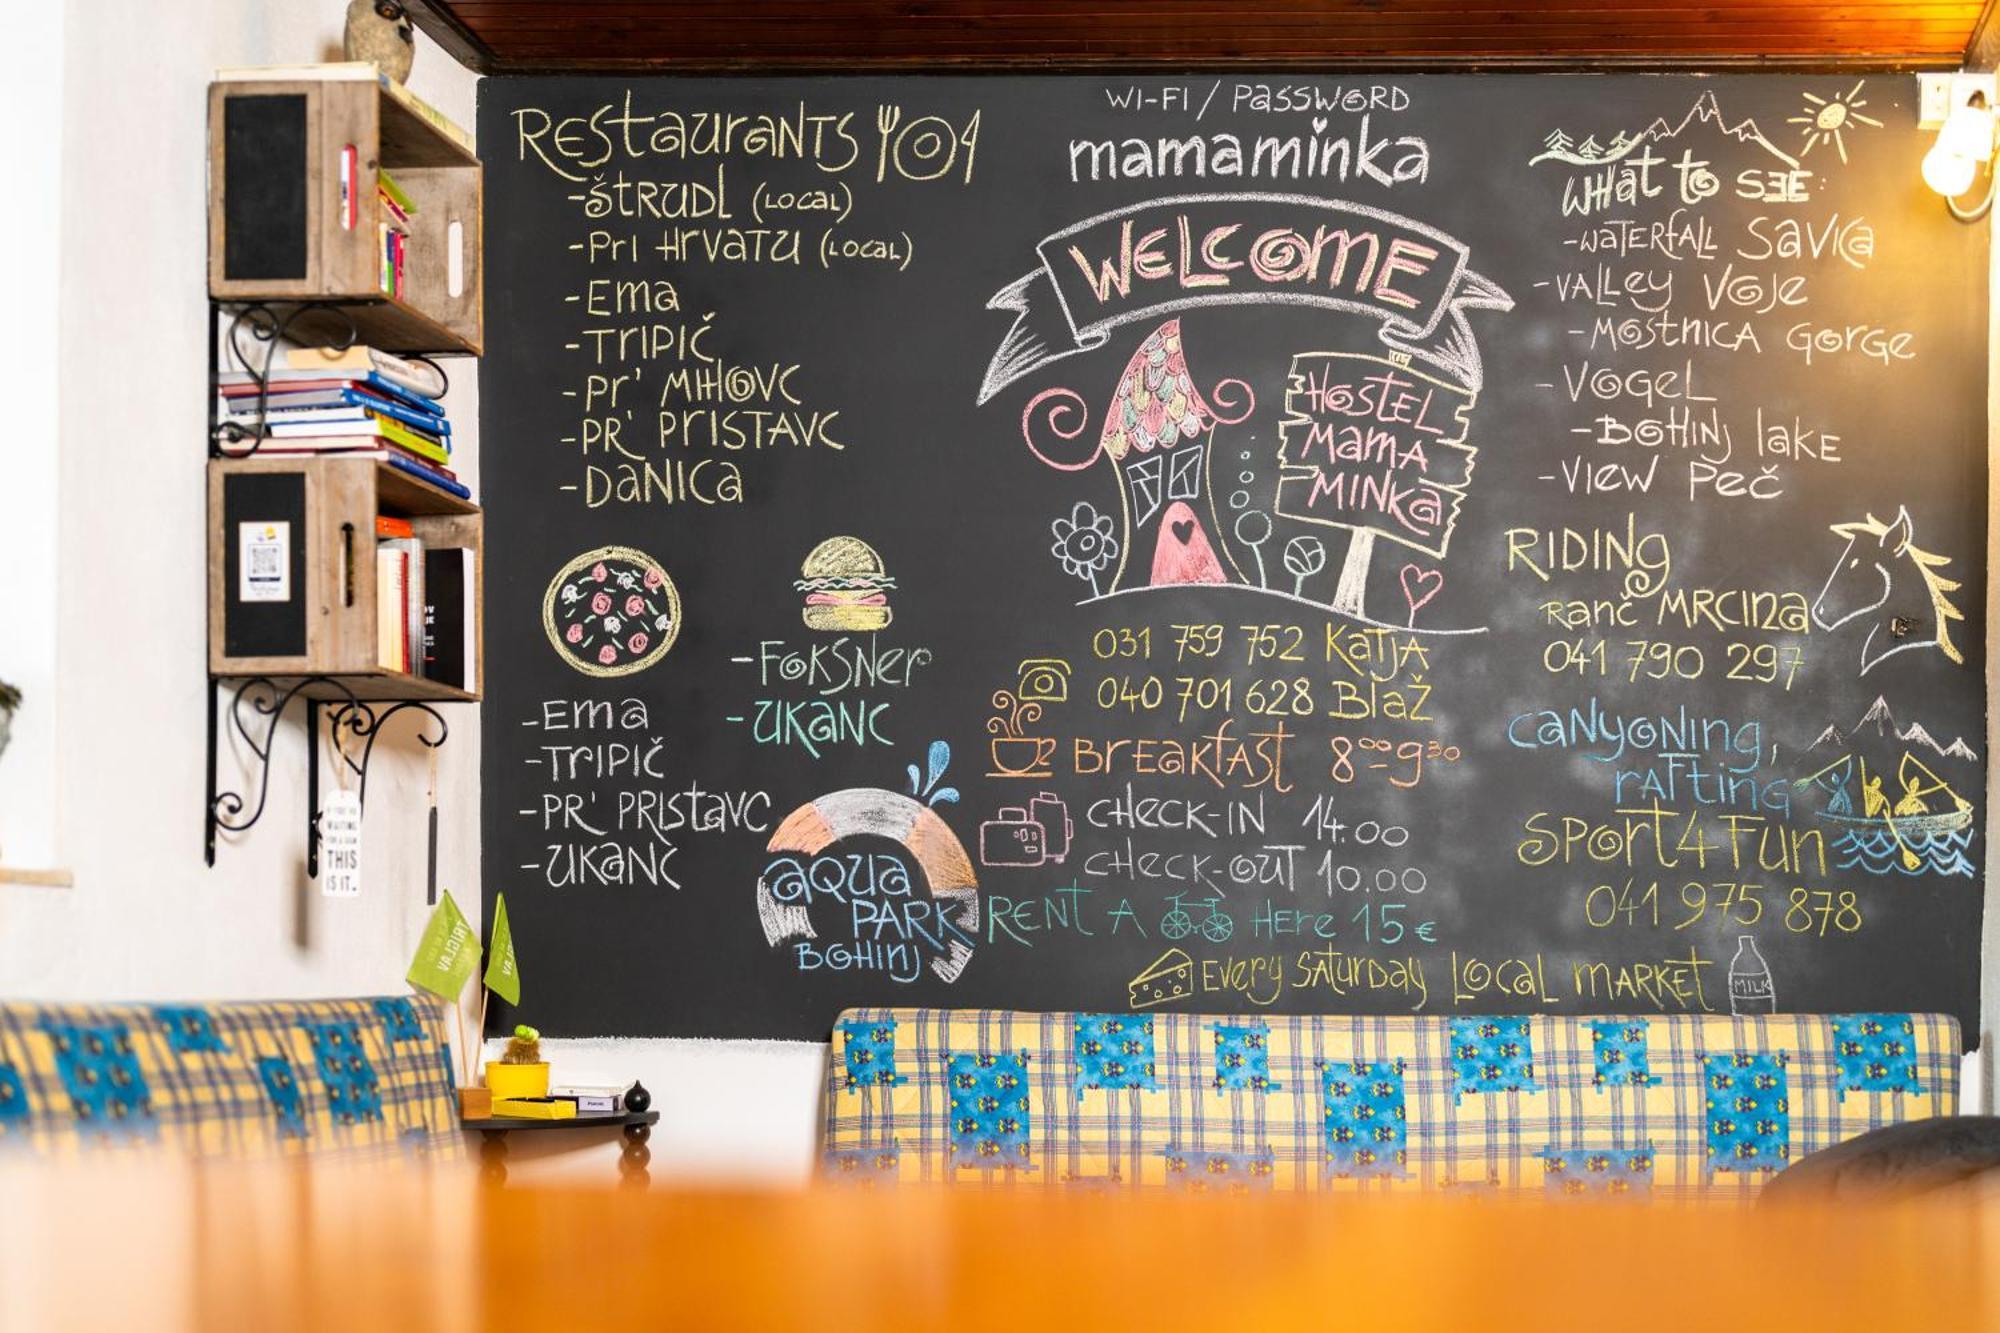 Restaurants
-ŠTRUDL (LOCAL)
-Pri Hrvatu (LOCAL)
-Ema
-TriPič
-Pr' MIHOVC
-PR' PRISTAVC
-DANICA
-Ema
-TriPič
-PR' PRIStavc
-UKANC
-FOKSNer
-UKANC
aQUa
PARK
BOHINJ
WI-FI / PASSWORD
mamaminka
WELCOME
HOSTEL
MAMA
MINKA
031 759 752 KATJA
040 701 628 BLAŽ
BREAKFAST 8⁰⁰-9³⁰
CHECK-IN 14.00
CHECK-OUT 10.00
RENT A HERE 15€
Every SATURDAY LOCAL MARKET
MILK
WHat to SEE:
-WATERFALL SAVICA
-VALLEY VOJE
-MOSTNICA GORGE
-VOGEL
-BOHINJ lAKE
-VIEW PEČ
RIDING
RANČ MRCINA
041 790 297
CANYONING,
RAFTING
SPORT4FUN
041 975 878
WAITING
THIS
IS IT.